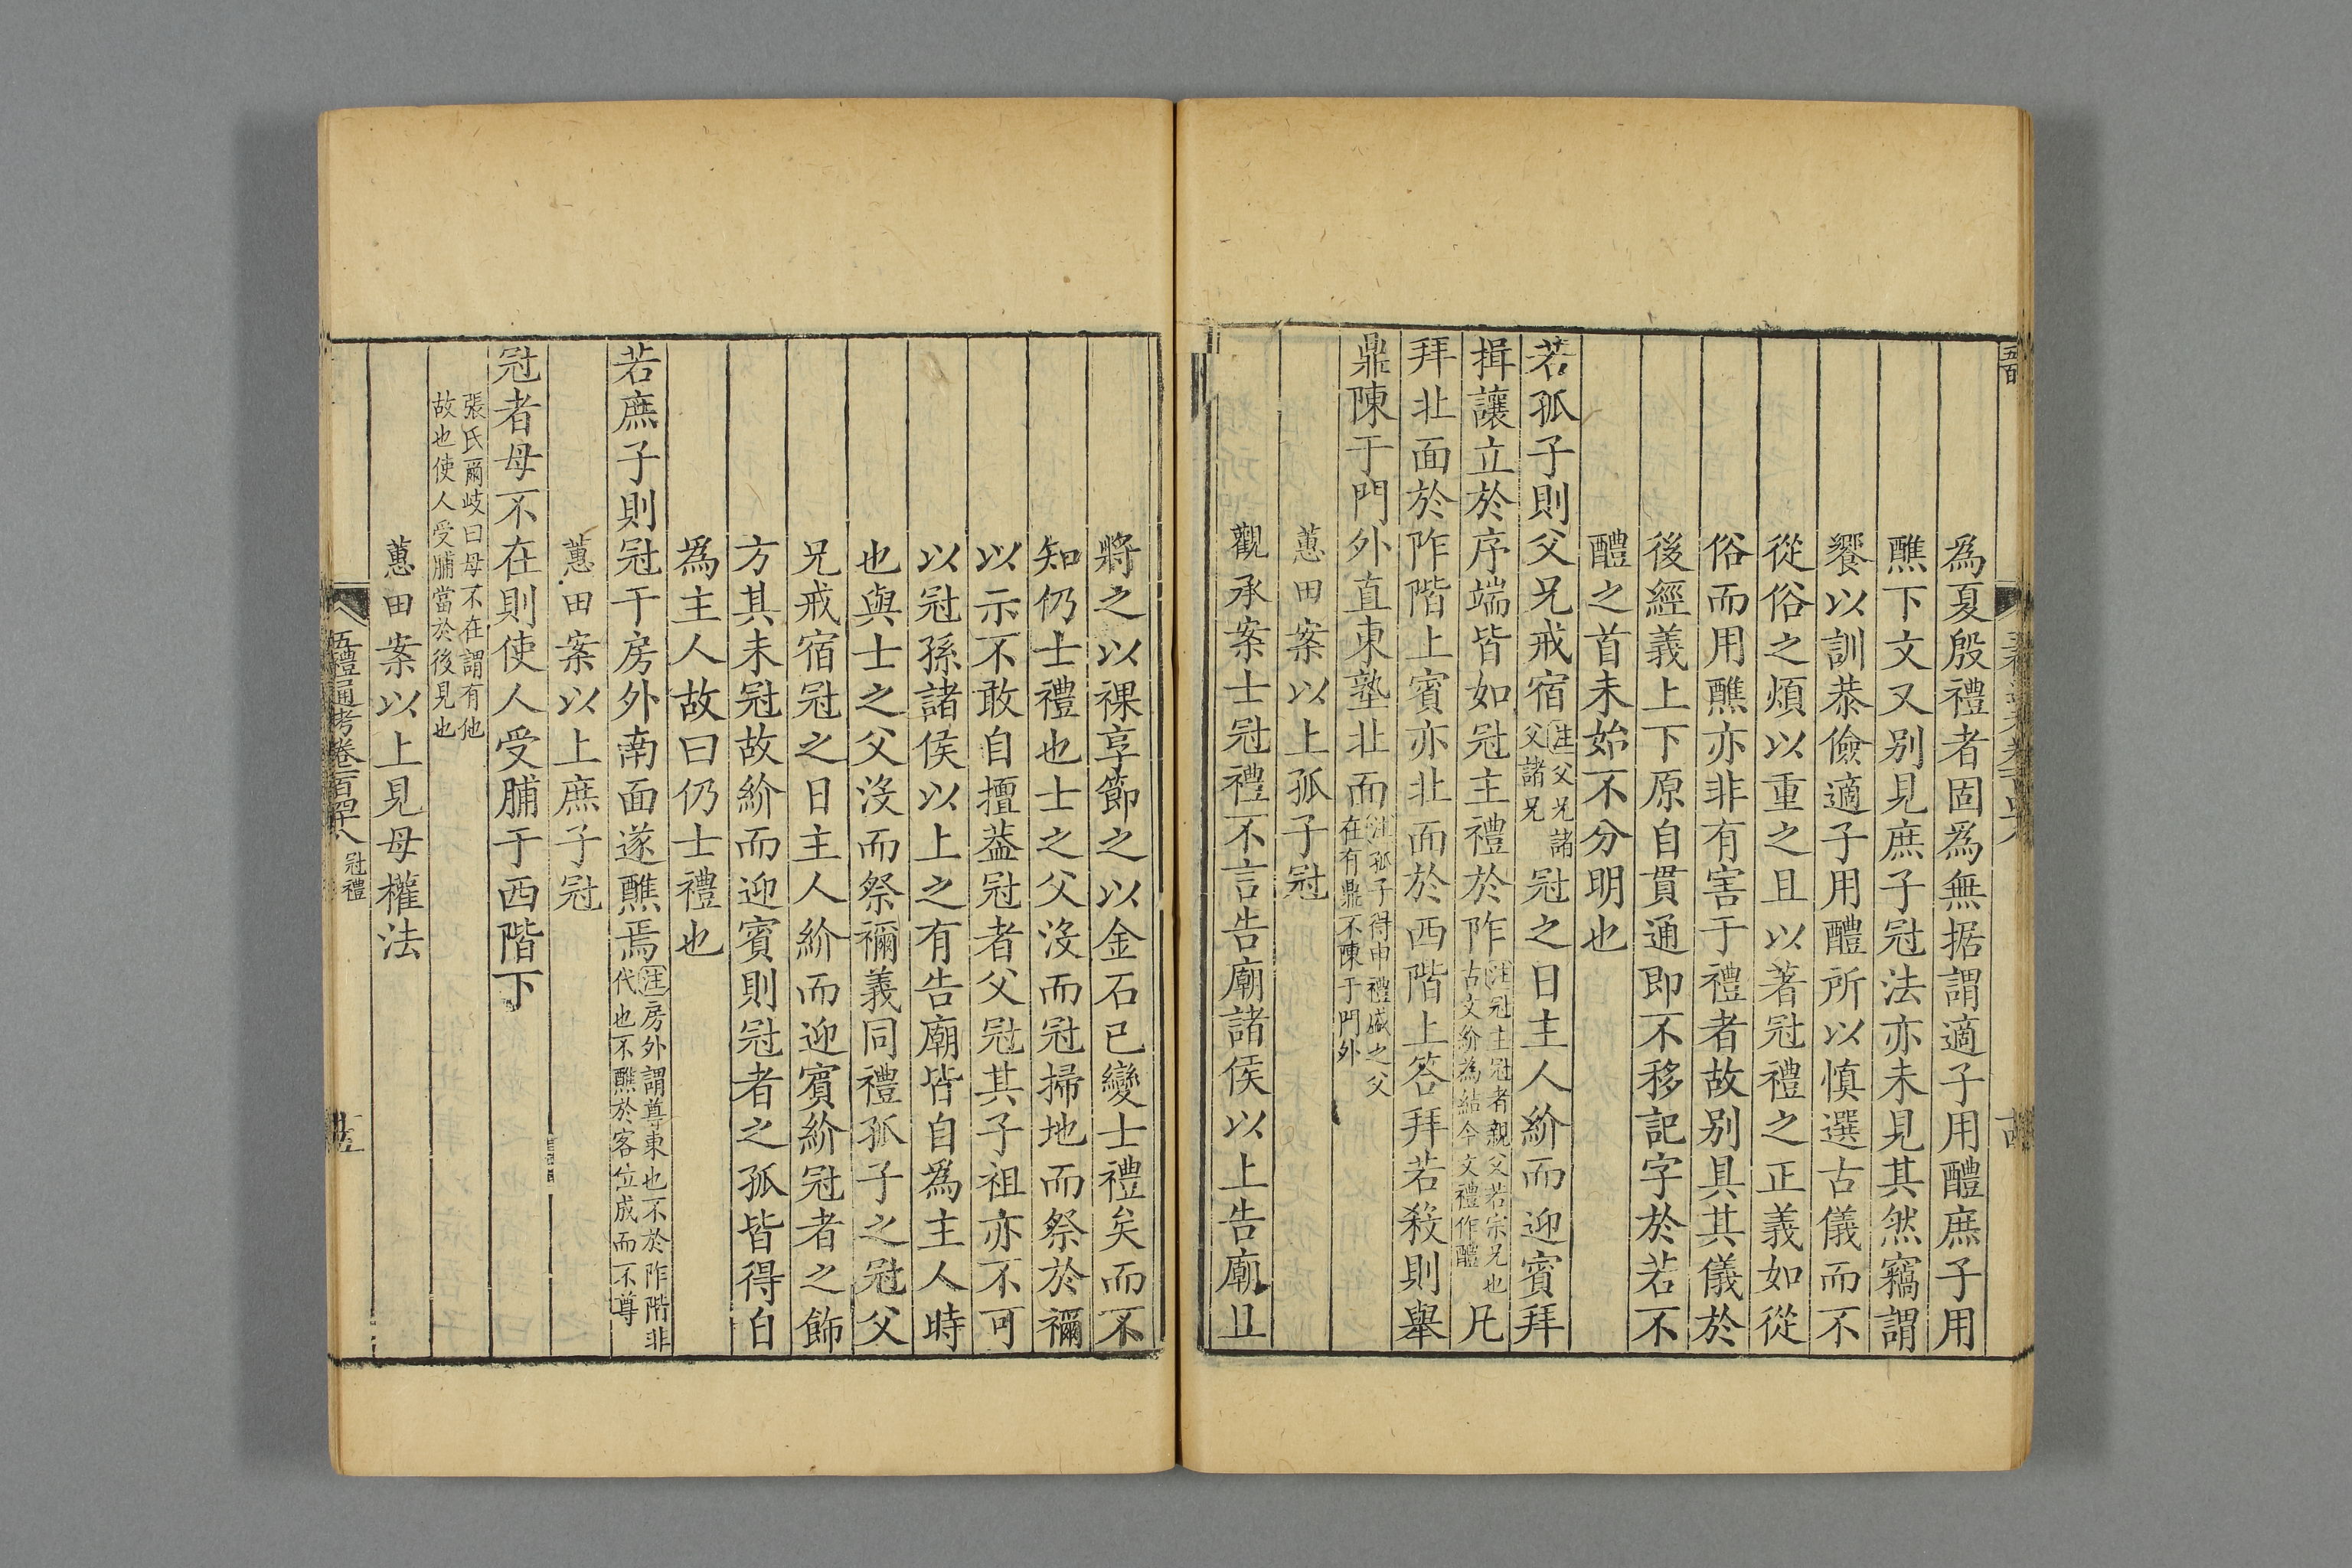 為夏殷禮者固為無据謂適子用醴庶子用
醮下文又别見庶子冠法亦未見其然竊謂
饗以訓恭儉適子用醴所以慎選古儀而不
從俗之煩以重之且以著冠禮之正義如從
俗而用醮亦非有害于禮者故别具其儀於
後經義上下原自貫通即不移記字於若不
醴之首未始不分明也
若孤子則父兄戒宿注父兄諸父諸兄冠之日主人紒而迎賓拜
揖讓立於序端皆如冠主禮於阼注冠主冠者親父若宗兄也古文紒為結今文禮作醴凡
拜北面於阼階上賓亦北面於西階上答拜若殺則舉
鼎陳于門外直東塾北面注孤子得申禮盛之父在有鼎不陳于門外
蕙田案以上孤子冠
觀承案士冠禮不言告廟諸侯以上告廟且
將之以祼享節之以金石已變士禮矣而不
知仍士禮也士之父沒而冠掃地而祭於禰
以示不敢自擅葢冠者父冠其子祖亦不可
以冠孫諸侯以上之有告廟皆自為主人時
也與士之父沒而祭禰義同禮孤子之冠父
兄戒宿冠之日主人紒而迎賓紒冠者之飾
方其未冠故紒而迎賓則冠者之孤皆得自
為主人故曰仍士禮也
若庶子則冠于房外南面遂醮焉注房外謂尊東也不於阼階非代也不醮於客位成而不尊
蕙田案以上庶子冠
冠者母不在則使人受脯于西階下
張氏爾岐曰母不在謂有他
故也使人受脯當於後見也
蕙田案以上見母權法
五禮通考卷一百四十八 冠禮